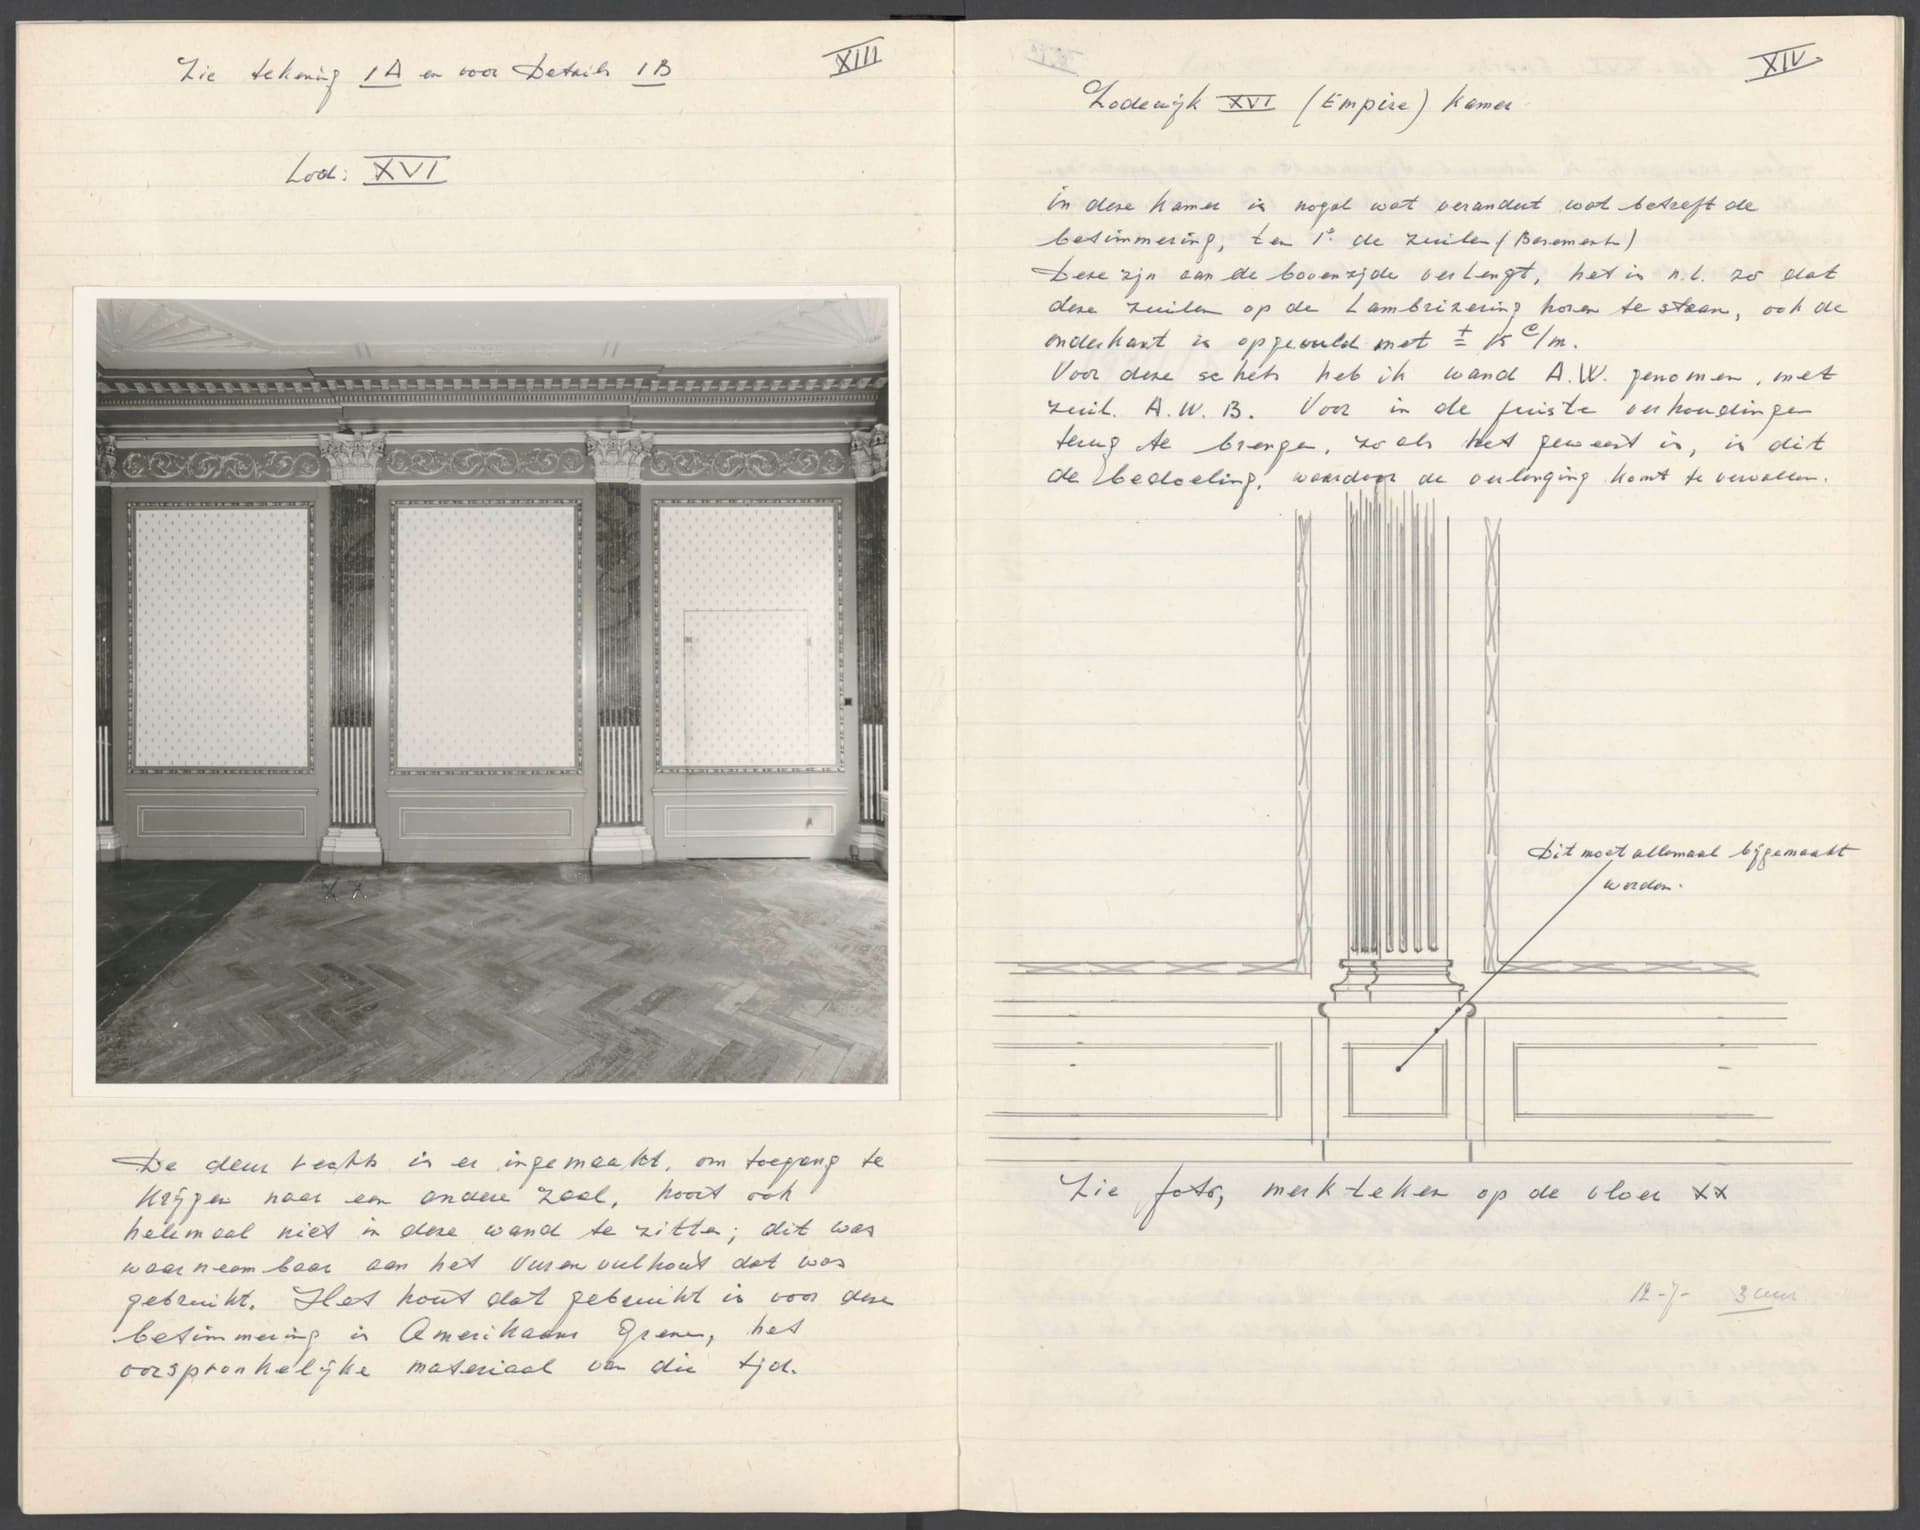 Zie tekening 1A en voor Details 1B
XIII
Lod: XVI
De deur rechts is er ingemaakt, om toegang te
krijgen naar een andere zaal, hoort ook
helemaal niet in deze wand te zitten; dit was
waarneembaar aan het vuren vulhout dat was
gebruikt. Het hout dat gebruikt is voor deze
betimmering is Amerikaans Grenen, het
oorspronkelijke materiaal van die tijd.
XIV
Lodewijk XVI (Empire) Kamer
in deze kamer is nogal wat verandert wat betreft de
betimmering, ten 1e de zuilen (Basement)
Deze zijn aan de bovenzijde verlengt, het is n.l. zo dat
deze zuilen op de Lambrizering horen te staan, ook de
onderkant is opgevuld met ± c/m.
Voor deze schets heb ik wand A.W. genomen, met
zuil. A.W.B. Voor in de juiste verhoudingen
terug te brengen, zoals het geweest is, is dit
de bedoeling, waardoor de verlenging komt te vervallen.
Dit moet allemaal bijgemaakt
worden.
Zie foto, merkteken op de vloer xx
12-7- 3 uur